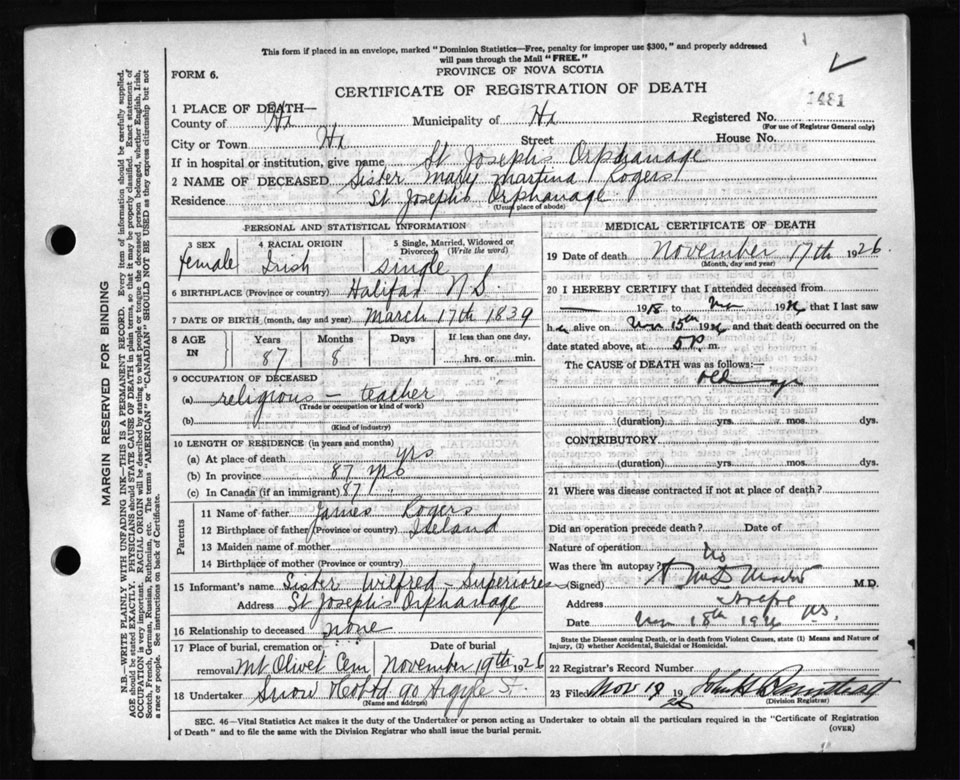 This form if placed in an envelope, marked "Dominion Statistics—Free, penalty for improper use $300," and properly addressed
will pass through the Mail "FREE."
FORM 6.
PROVINCE OF NOVA SCOTIA
CERTIFICATE OF REGISTRATION OF DEATH
1481
1 PLACE OF DEATH—
County of Hx Municipality of Hx Registered No.
(For use of Registrar General only)
City or Town Hx Street House No.
If in hospital or institution, give name St Josephs Orphanage
2 NAME OF DECEASED Sister Mary Martina (Rogers)
Residence St Josephs Orphanage
(Usual place of abode)
PERSONAL AND STATISTICAL INFORMATION
3 SEX
female
4 RACIAL ORIGIN
Irish
5 Single, Married, Widowed or
Divorced (Write the word)
single
6 BIRTHPLACE (Province or country) Halifax N.S.
7 DATE OF BIRTH (month, day and year) March 17th 1839
8 AGE IN
Years Months Days If less than one day,
87 8 hrs. or min.
9 OCCUPATION OF DECEASED
(a) religious – teacher
(Trade or occupation or kind of work)
(b)
(Kind of industry)
10 LENGTH OF RESIDENCE (in years and months)
(a) At place of death yrs
(b) In province 87 yrs
(c) In Canada (if an immigrant) 87 "
Parents
11 Name of father James Rogers
12 Birthplace of father (Province or country) Ireland
13 Maiden name of mother
14 Birthplace of mother (Province or country)
15 Informant's name Sister Wilfred – Superioress
Address St Joseph's Orphanage
16 Relationship to deceased none
17 Place of burial, cremation or Date of burial
removal Mt Olivet Cem November 19th 1926
18 Undertaker Snow & Co Ltd 90 Argyle St.
(Name and address)
MEDICAL CERTIFICATE OF DEATH
19 Date of death November 17th 1926
(Month, day and year)
20 I HEREBY CERTIFY that I attended deceased from
1918 to Nov 1926 that I last saw
her alive on Nov 15th 1926 and that death occurred on the
date stated above, at 5 P m.
The CAUSE OF DEATH was as follows:—
old age
(duration) yrs. mos. dys.
CONTRIBUTORY
(duration) yrs. mos. dys.
21 Where was disease contracted if not at place of death?
Did an operation precede death? Date of
Nature of operation
Was there an autopsy? No
(Signed) M.D.
Address
Date Nov 18th 1926
State the Disease causing Death, or in death from Violent Causes, state (1) Means and Nature of
Injury, (2) whether Accidental, Suicidal or Homicidal.
22 Registrar's Record Number
23 Filed Nov 19 1926
(Division Registrar)
SEC. 46—Vital Statistics Act makes it the duty of the Undertaker or person acting as Undertaker to obtain all the particulars required in the "Certificate of Registration
of Death" and to file the same with the Division Registrar who shall issue the burial permit.
(OVER)
MARGIN RESERVED FOR BINDING
N.B.—WRITE PLAINLY WITH UNFADING INK—THIS IS A PERMANENT RECORD. Every item of information should be carefully supplied.
AGE should be stated EXACTLY. PHYSICIANS should STATE CAUSE OF DEATH in plain terms, so that it may be properly classified. Exact statement of
OCCUPATION is very important. RACIAL ORIGIN will be described by stating to what people or tongue the deceased person belonged, whether English, Irish,
Scotch, French, German, Russian, Ruthenian, etc. The terms "AMERICAN" or "CANADIAN" SHOULD NOT BE USED as they express citizenship but not
a race or people. See instructions on back of Certificate.